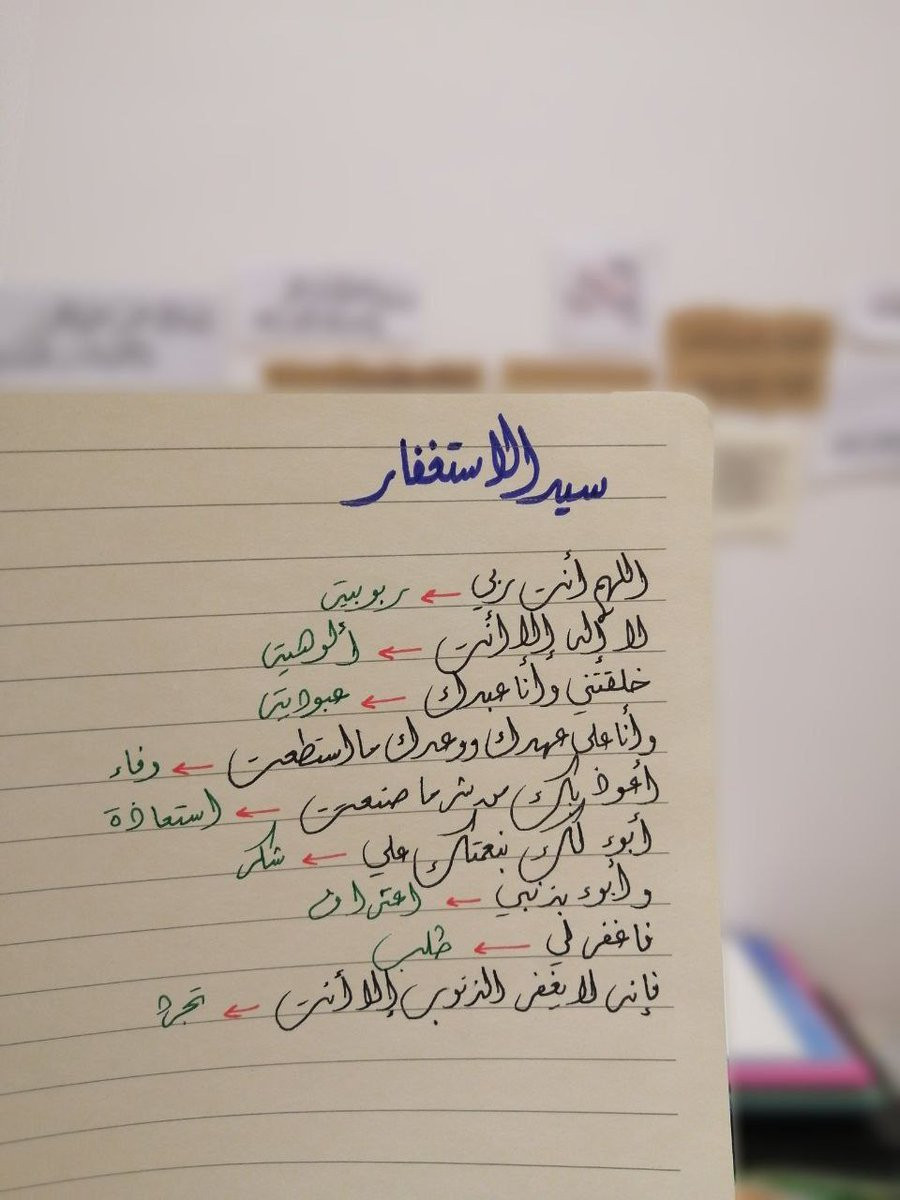 سيد الاستغفار
اللهم أنت ربي ← ربوبية
لا إله إلا أنت ← ألوهية
خلقتني وأنا عبدك ← عبودية
وأنا على عهدك ووعدك ما استطعت ← وفاء
أعوذ بك من شر ما صنعت ← استعاذة
أبوء لك بنعمتك علي ← شكر
وأبوء بذنبي ← اعتراف
فاغفر لي ← طلب
فإنه لا يغفر الذنوب إلا أنت ← تجرد